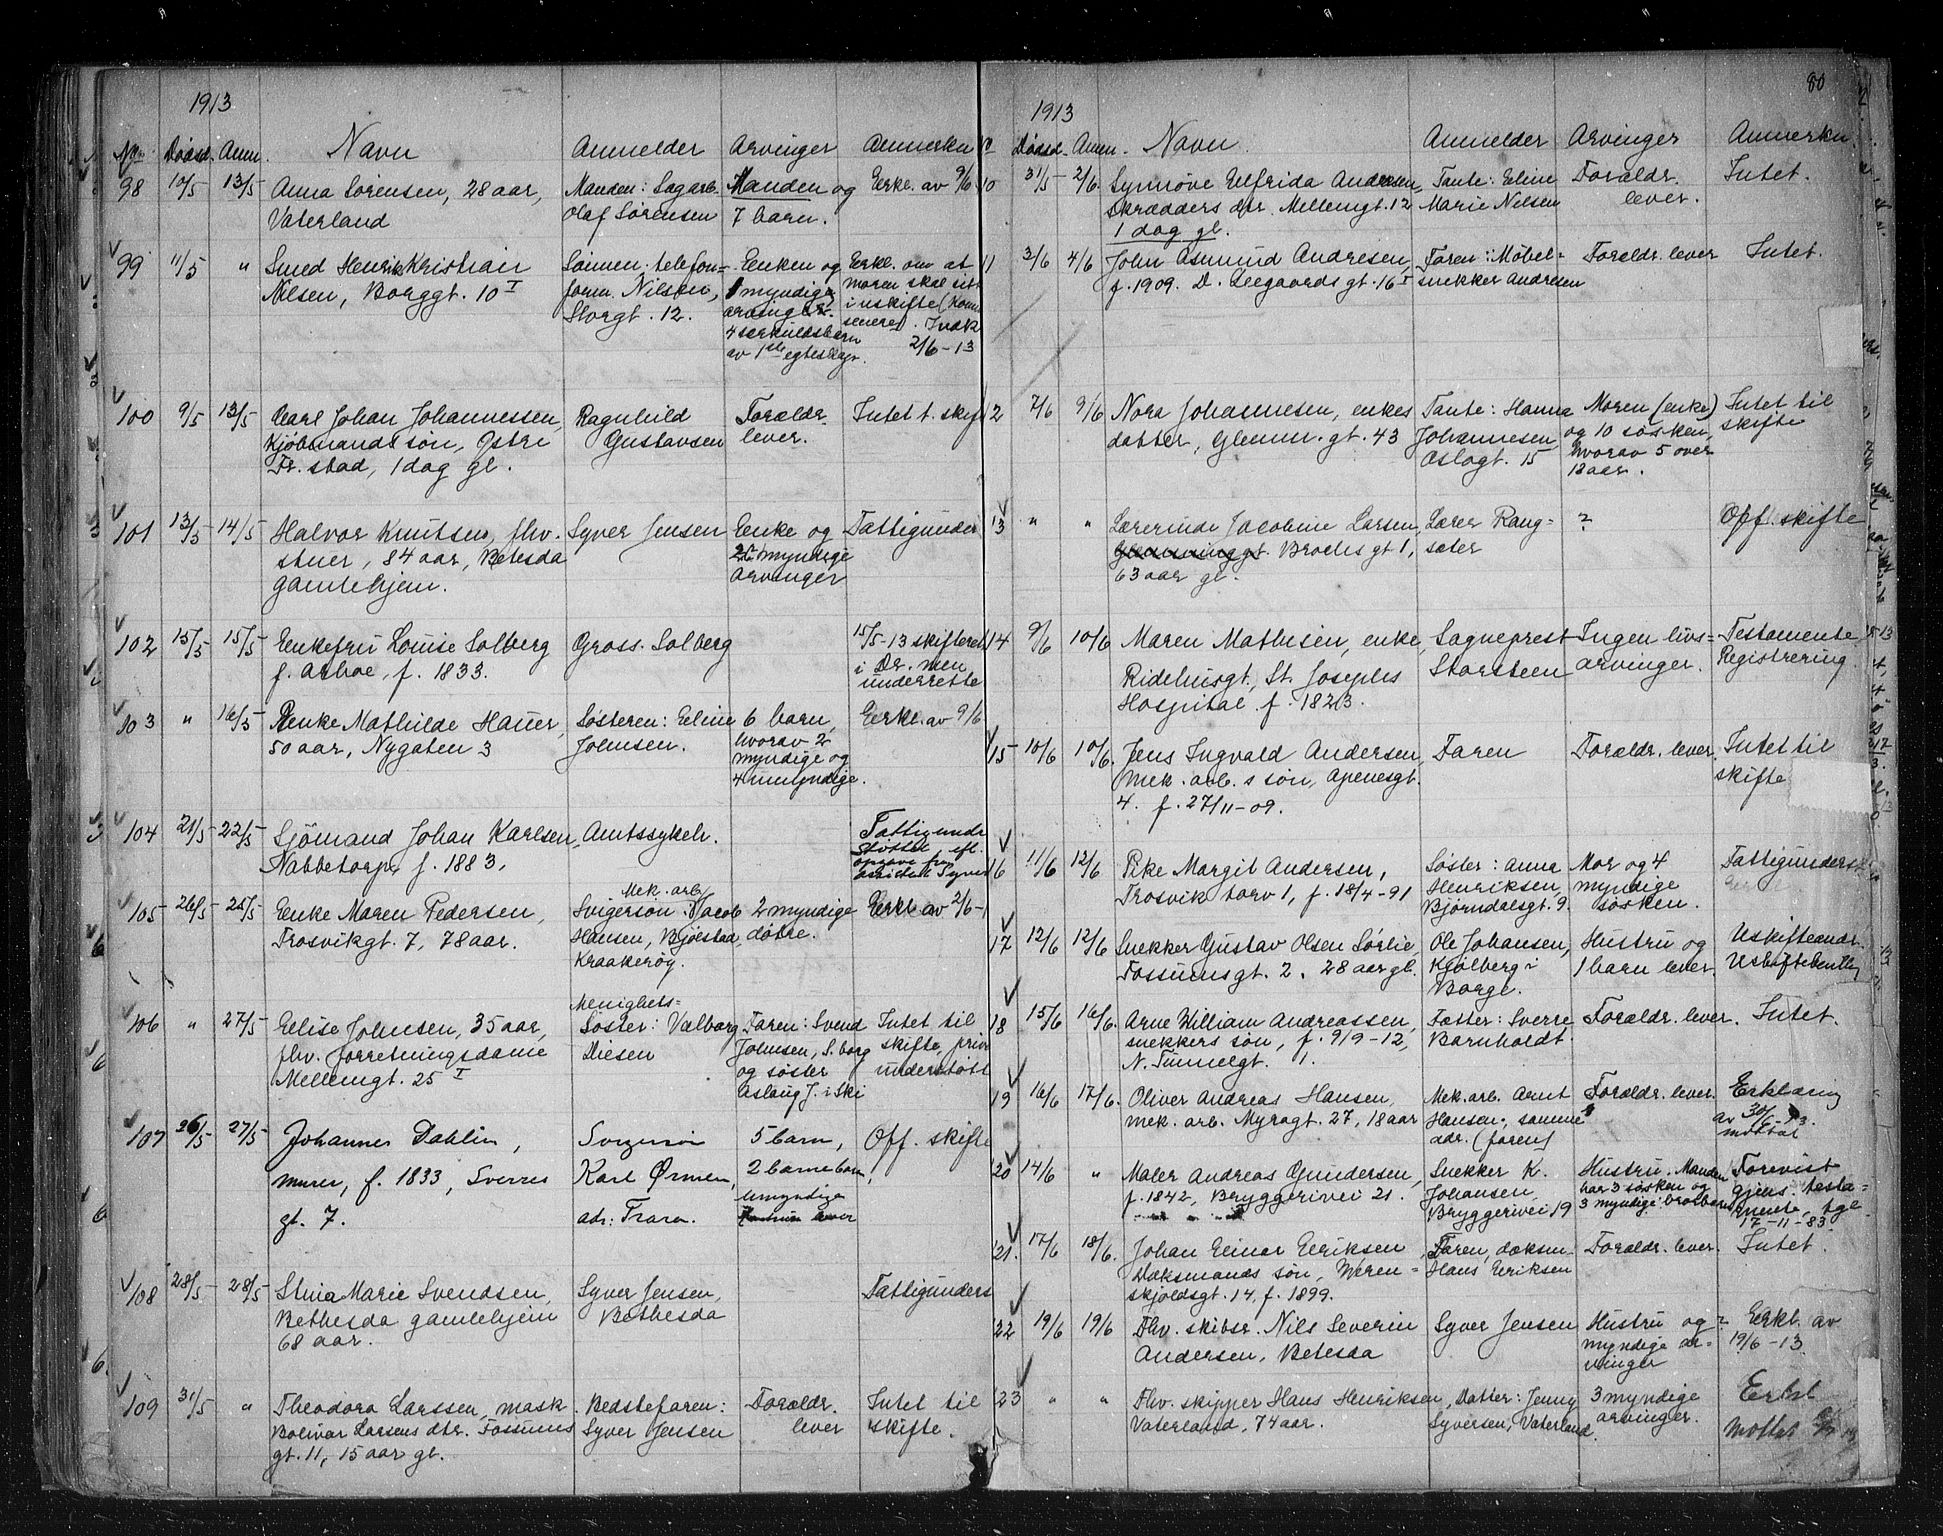 1913
No. Dødsd. Anm. Navn Anmelder Arvinger Anmerkn
98 10/5 13/5 Anna Sørensen, 28 aar, Manden: Sagarb. Manden og Erkl. av 9/6
Vaterland Olaf Sørensen 7 barn.
99 11/5 " Smed Henrik Kristian Sønnen: telefon= Enken og Erkl. om at
Nilsen, Borggt. 10 I form. Nilsen, myndige moren skal sitte
Storgt. 12. arvinger. i uskifte
4 særkuldsbarn senere).
av 1ste egteskap. 2/6-13
100 9/5 13/5 Carl Johan Johannessen, Ragnhild Forældr. Intet t. skif
Kjøbmands søn, Østre Gustavsen lever.
Fr.stad, 1 dag gl.
101 13/5 14/5 Halvor Knutsen, fhv. Syver Jensen Enke og Fattigunder
stuer, 84 aar, Betesda myndige
gamlehjem. arvinger
102 15/5 15/5 Enkefru Louise Solberg Gross. Solberg 15/5-13 skifteret
f. Arboe, f. 1833. i Dr.men
underrettet
103 " 16/5 Enke Mathilde Hauer, Søsteren: Eline 6 barn, Erkl. av 9/6
50 aar, Nygaten 3 Johnsen. hvorav 2
myndige og
4 umyndige.
104 21/5 22/5 Sjømand Johan Karlsen, Amtssykeh. Fattigunder
Nabbetorp, f. 1883. støttet efl.
opgave fra
105 26/5 28/5 Enke Maren Pedersen, Mek. arb.
Svigersøn: Jacob 2 myndige Erkl. av 2/6-
Trosvikgt. 7, 78 aar. Hansen, Bjølstad, døtre.
Kraakerøy.
106 " 27/5 Elise Johnsen, 35 aar, Menigheds=
Søster: Valborg Faren: Svend Intet til
fhv. forretningsdame Diesen Johnsen, S.borg skifte, priv
Mellemgt. 25 I og søster understøtt
Aslaug J. i Ski
107 26/5 27/5 Johannes Dahlin, Svigersøn 5 barn, Off. skifte
murer, f. 1833, Sverres Karl Ørmen, 2 barnebarn,
gt. 7. adr: Trara. umyndige
108 28/5 28/5 Stina Marie Svendsen, Syver Jensen, Fattigunders
Bethesda gamlehjem Bethesda
68 aar.
109 31/5 " Theodora Larssen, mask. Bedstefaren: Forældr. Intet til
Bolivar Larsens dtr. Fossums Syver Jensen lever skifte.
gt. 11, 15 aar gl.
80
1913
Dødsd. Anm. Navn Anmelder Arvinger Anmerkn.
10 31/5 2/6 Synnøve Elfrida Andresen, Tante: Eline Forældr. Intet.
Skrædders dtr. Mellemgt. 12 Marie Nilsen lever.
1 dag gl.
11 3/6 4/6 John Asmund Andresen, Faren: Møbel= Forældr. lever Intet.
f. 1909. D. Leegaards gt. 16 I snekker Andresen
12 7/6 9/6 Nora Johannesen, enkes Tante: Hanna Moren (enke) Intet til
datter, Glemm. gt. 43 Johannesen, og 10 søsken, skifte
Oslogt. 15 hvorav 5 over
18 aar.
13 " " Lærerinde Jacobine Larsen, Lærer Rang= ? Off. skifte
Brochs gt 1, sæter
63 aar gl.
14 9/6 10/6 Maren Mathisen, enke, Sogneprest Ingen livs= Testamente
Ridehusgt., St. Josephs Storsteen arvinger. Registrering.
Hospital f. 1823.
15 10/6 10/6. Jens Ingvald Andersen, Faren Forældr. lever. Intet til
Mek. arb. s søn, Apenesgt. skifte
4. f. 27/11-09.
16 11/6 12/6 Pike Margit Andersen, Søster: Anna Mor og 4 Fattigunderst
Trosvik torv 1, f. 18/4-91 Henriksen, myndige
Bjørndalsgt. 9. søsken.
17 12/6 12/6 Snekker Gustav Olsen Sørlie, Ole Johansen, Hustru og Uskifteandr.
Fossumsgt. 2, 28 aar gl. Kjølberg i 1 barn lever. Uskiftebevllg
Borge.
18 15/6 16/6. Arne William Andreassen, Fætter: Sverre Forældr. lever. Intet.
snekkers søn, f. 9/9-12, Barnholdt.
N. Tunnelgt. 1.
19 16/6 17/6. Oliver Andreas Hansen, Mek. arb. Arnt Forældr. lever. Erklæring
mek. arb. Myragt. 27, 18 aar Hansen, samme av 30/6-13.
adr. (faren) mottat
20 14/6 " Maler Andreas Gundersen, Snekker K. Hustru. Manden Forevist
f. 1842, Bryggerivei 21. Johansen, har 3 søsken og gjens. testa=
Bryggerivei 19 3 myndige brorbarn mente, tgl.
17-11-83.
21. 17/6 18/6. Johan Einar Eriksen Faren, doksm. Forældr. lever. Intet.
Doksmands søn, Weren= Hans Eriksen
skjoldsgt. 14, f. 1899.
22 19/6 19/6 Fhv. skibsr. Nils Severin Syver Jensen Hustru og Erkl. av
Andersen, Betesda myndige ar= 19/6-13.
vinger
23 " " Fhv. skipper Hans Henriksen, Datter: Jenny 3 myndige Erkl
Vaterland, 74 aar. Syversen, Vaterland. arvinger. mottat